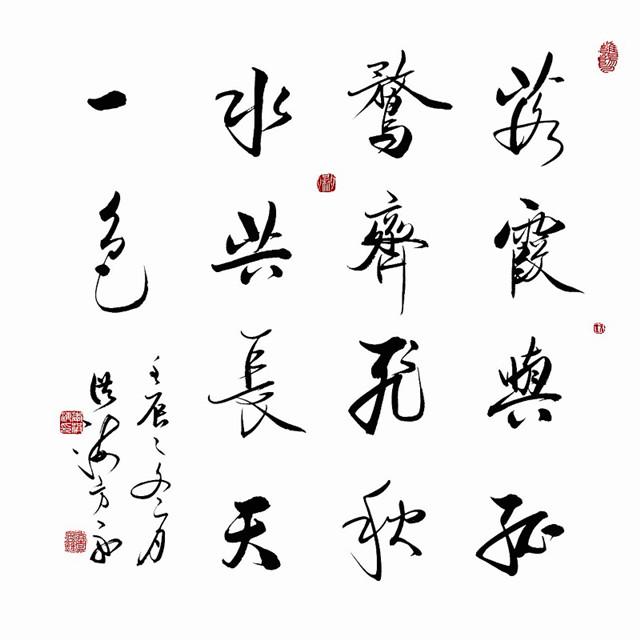 落霞與孤
鶩齊飛秋
水共長天
一色
壬辰之冬月